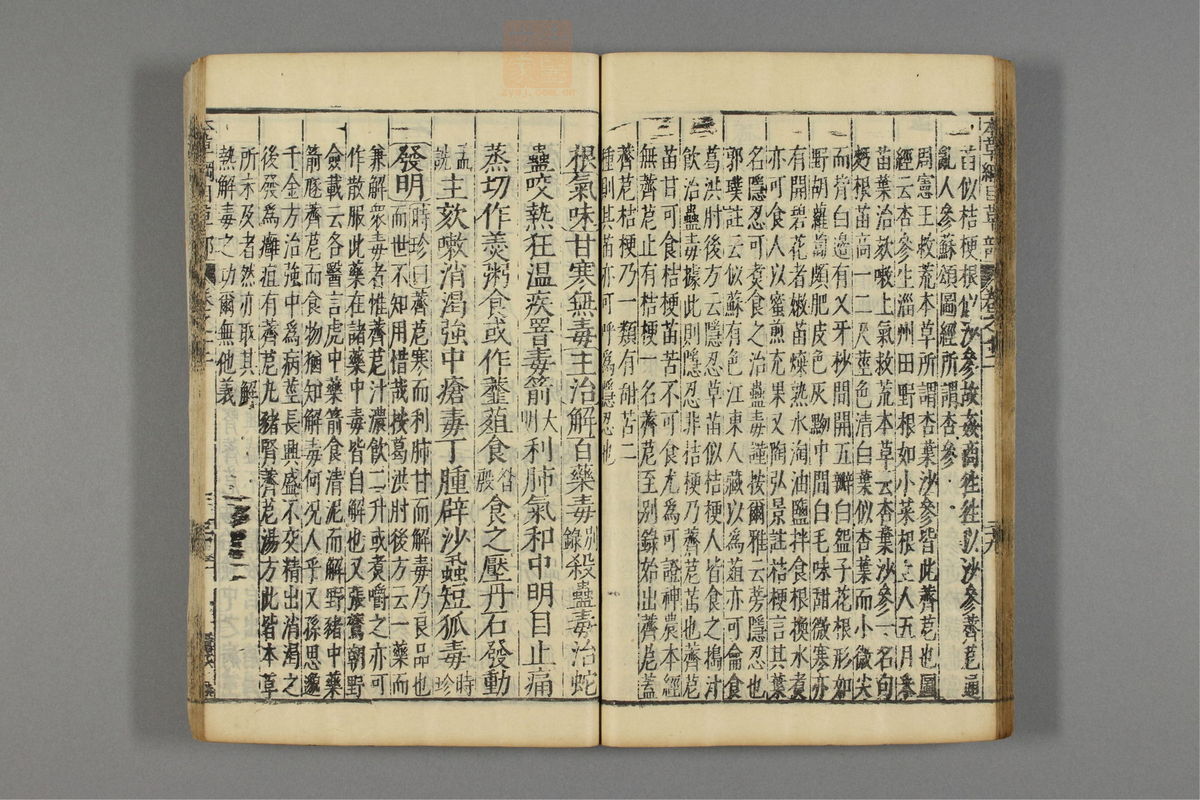 苗似桔梗根似沙參故姦商往往以沙參薺苨通
亂人參蘇頌圖經所謂杏參
周憲王救荒本草所謂杏葉沙參皆此薺苨也圖
經云杏參生淄州田野根如小菜根土人五月采
苗葉治欬嗽上氣救荒本草云杏葉沙參一名白
麪根苗高一二尺莖色清白葉似杏葉而小微尖
而背白邊有叉牙杪間開五瓣白盌子花根形如
野胡蘿蔔頗肥皮色灰黝中間白毛味甜微寒亦
有開碧花者嫩苗煠熟水淘油鹽拌食根換水煮
亦可食人以蜜煎充果又陶弘景註桔梗言其葉
名隱忍可煮食之治蠱毒謹按爾雅云蒡隱忍也
郭璞註云似蘇有毛江東人藏以為葅亦可瀹食
葛洪肘後方云隱忍草苗似桔梗人皆食之搗汁
飲治蠱毒據此則隱忍非桔梗乃薺苨苗也薺苨
苗甘可食桔梗苗苦不可食尤為可證神農本經
無薺苨止有桔梗一名薺苨至別錄始出薺苨蓋
薺苨桔梗乃一類有甜苦二
種則其苗亦可呼為隱忍也
根氣味甘寒無毒主治解百藥毒別錄殺蠱毒治蛇
蟲咬熱狂溫疾罯毒箭大明利肺氣和中明目止痛
蒸切作羹粥食或作虀葅食昝殷食之壓丹石發動
孟詵主欬嗽消渴強中瘡毒丁腫辟沙虱短狐毒時珍
發明時珍曰薺苨寒而利肺甘而解毒乃良品也
而世不知用惜哉按葛洪肘後方云一藥而
兼解衆毒者惟薺苨汁濃飲二升或煮嚼之亦可
作散服此藥在諸藥中毒皆自解也又張鷟朝野
僉載云各醫言虎中藥箭食清泥而解野豬中藥
箭豗薺苨而食物猶知解毒何況人乎又孫思邈
千金方治強中為病莖長興盛不交精出消渴之
後發為癰疽有薺苨丸豬腎薺苨湯方此皆本草
所未及者然亦取其解
熱解毒之功爾無他義